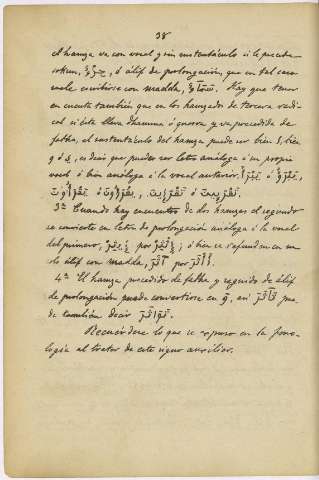 38
el hamza va con vocal y sin sustentáculo si le precede
sokun, ó álif de prolongación, que en tal caso
suele escribirse con madda, Hay que tener
en cuenta también que en los hamzados de tercera radi-
cal si ésta lleva dhamma ó quesra y va precedida de
fatha, el sustentáculo del hamza puede ser bien ا, bien
و ó ى, es decir que puede ser letra análoga á su propia
vocal ó bien análoga á la vocal anterior:
3ª Cuando hay encuentro de dos hamzas el segundo
se convierte en letra de prolongación análoga á la vocal
del primero, por ; ó bien se refunden en un
solo álif con madda, por
4ª El hamza precedido de fatha y seguido de álif
de prolongación puede convertirse en و, así pue-
de también decir
Recuérdese lo que se expuso en la fono-
logía al tratar de este signo auxiliar.